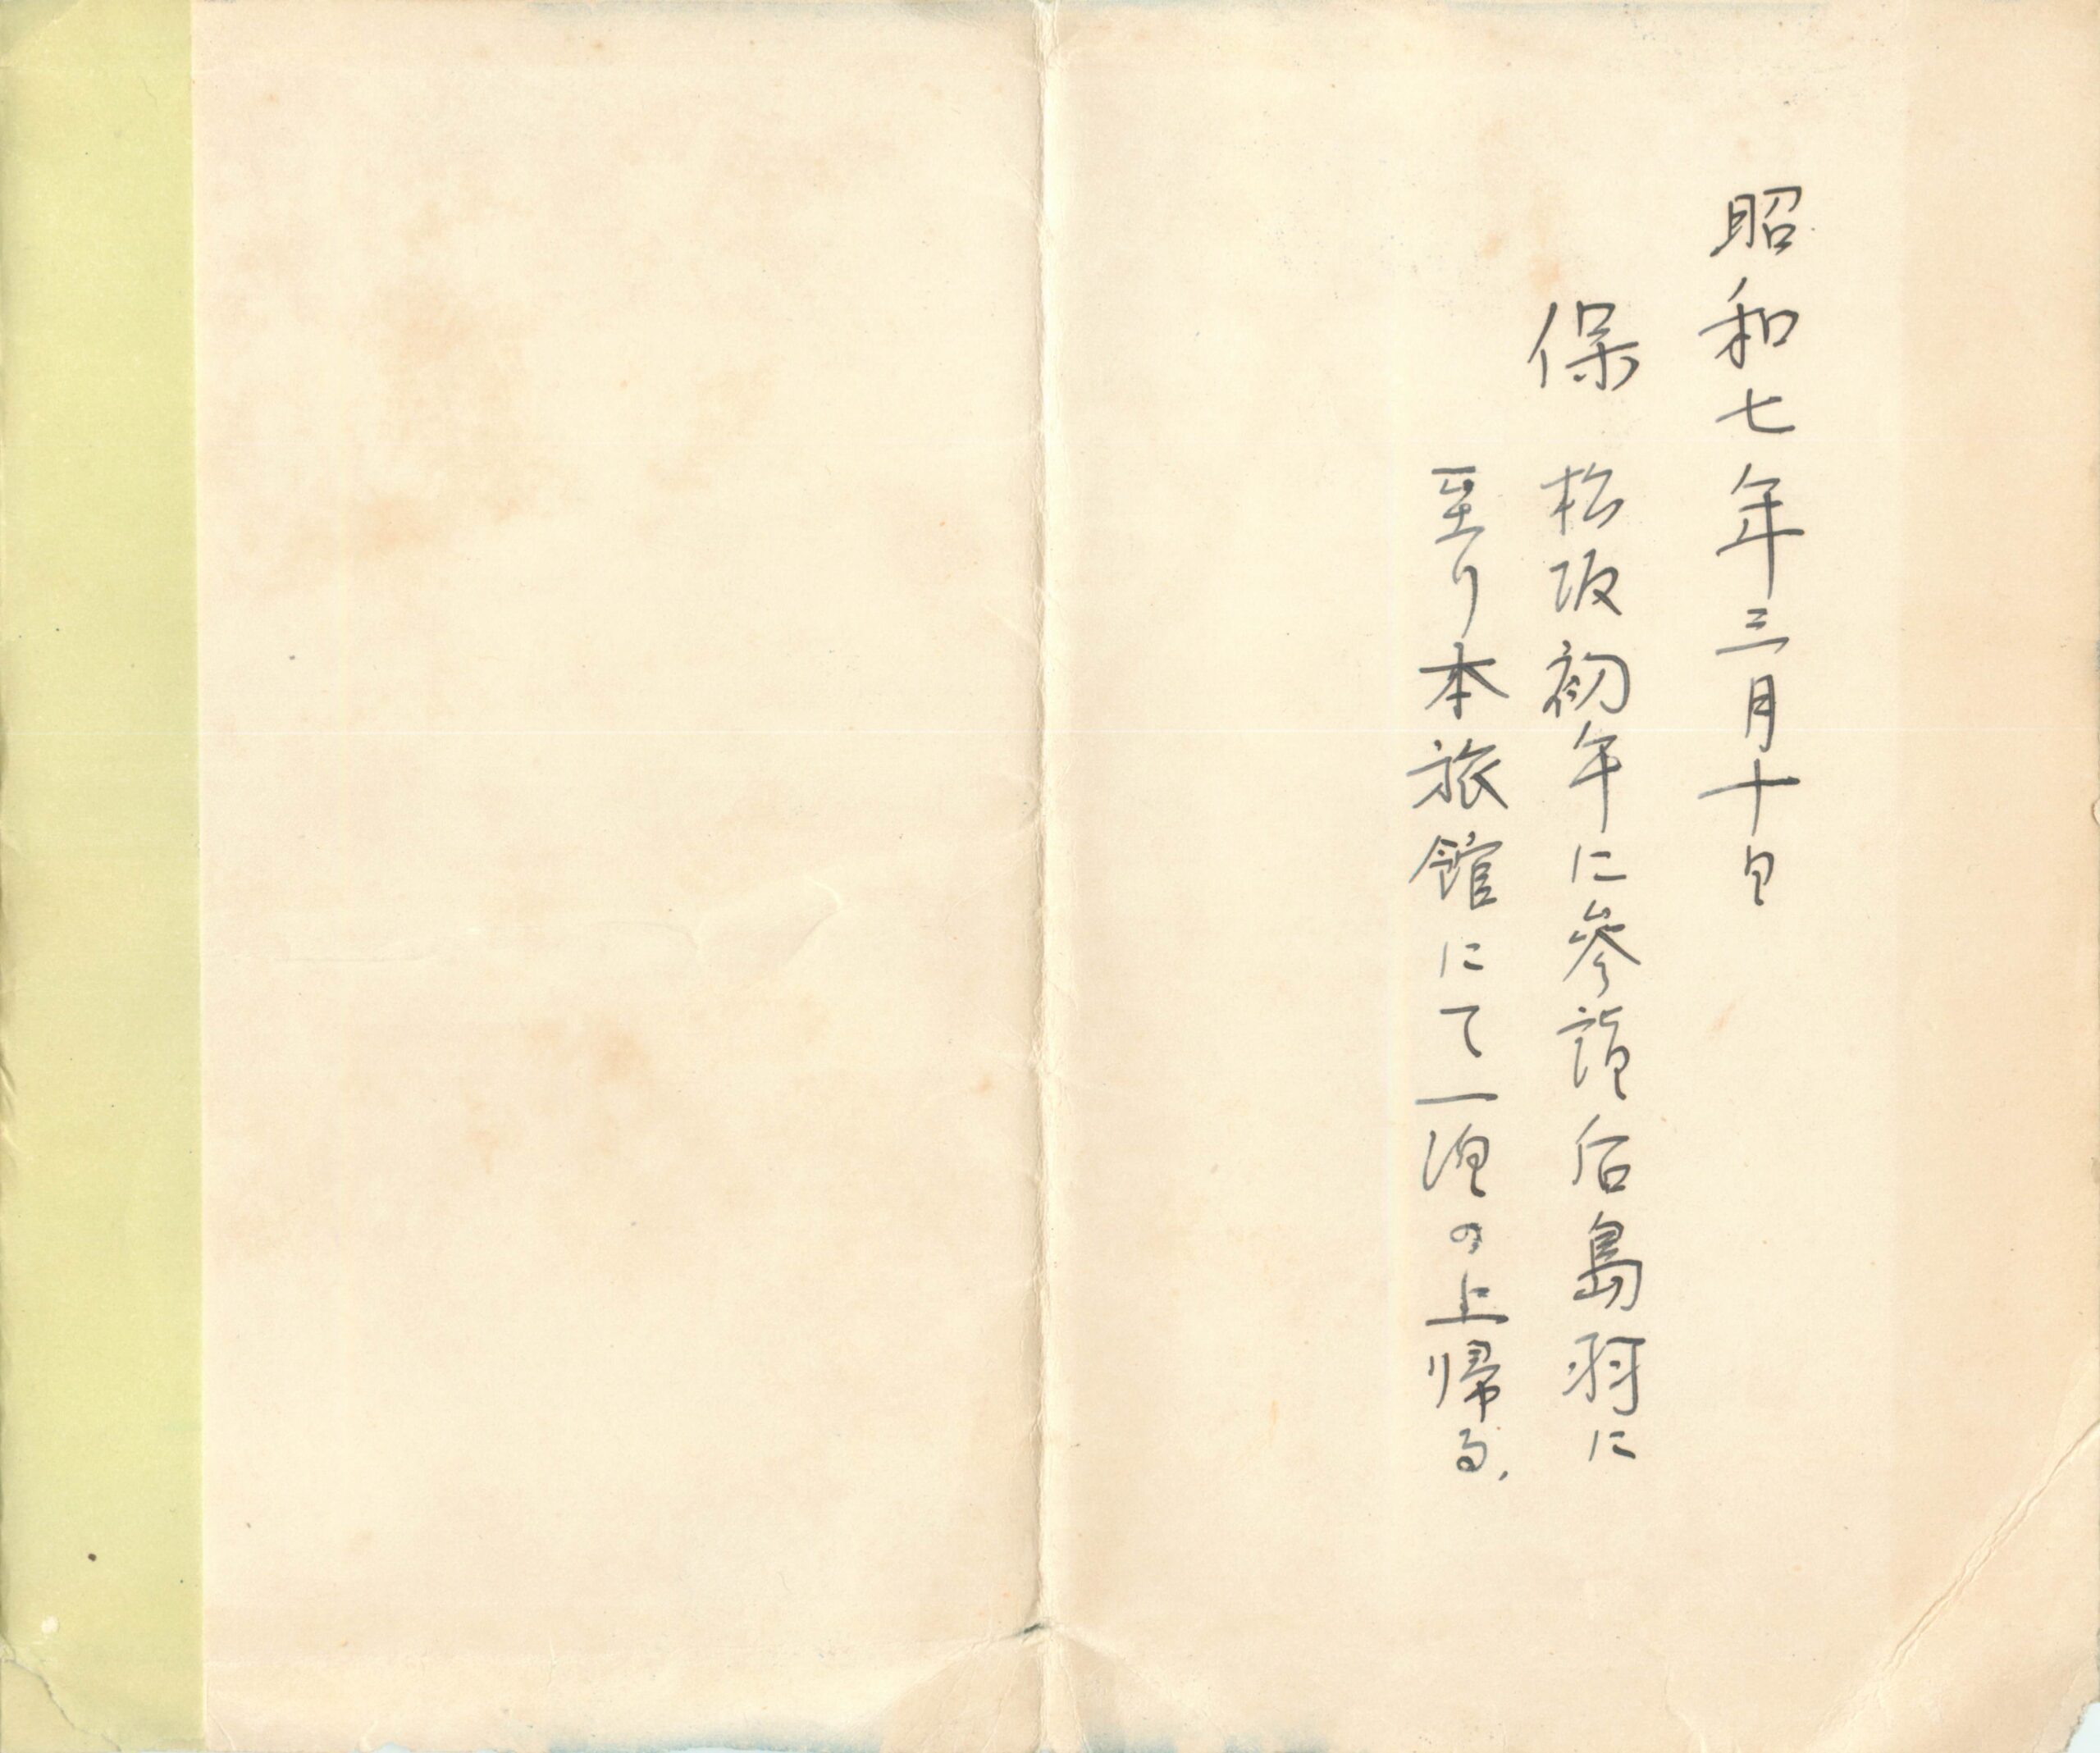 昭和七年三月十日
保 松阪初午に参詣后島羽に
至り本旅館にて一泊の上帰る、